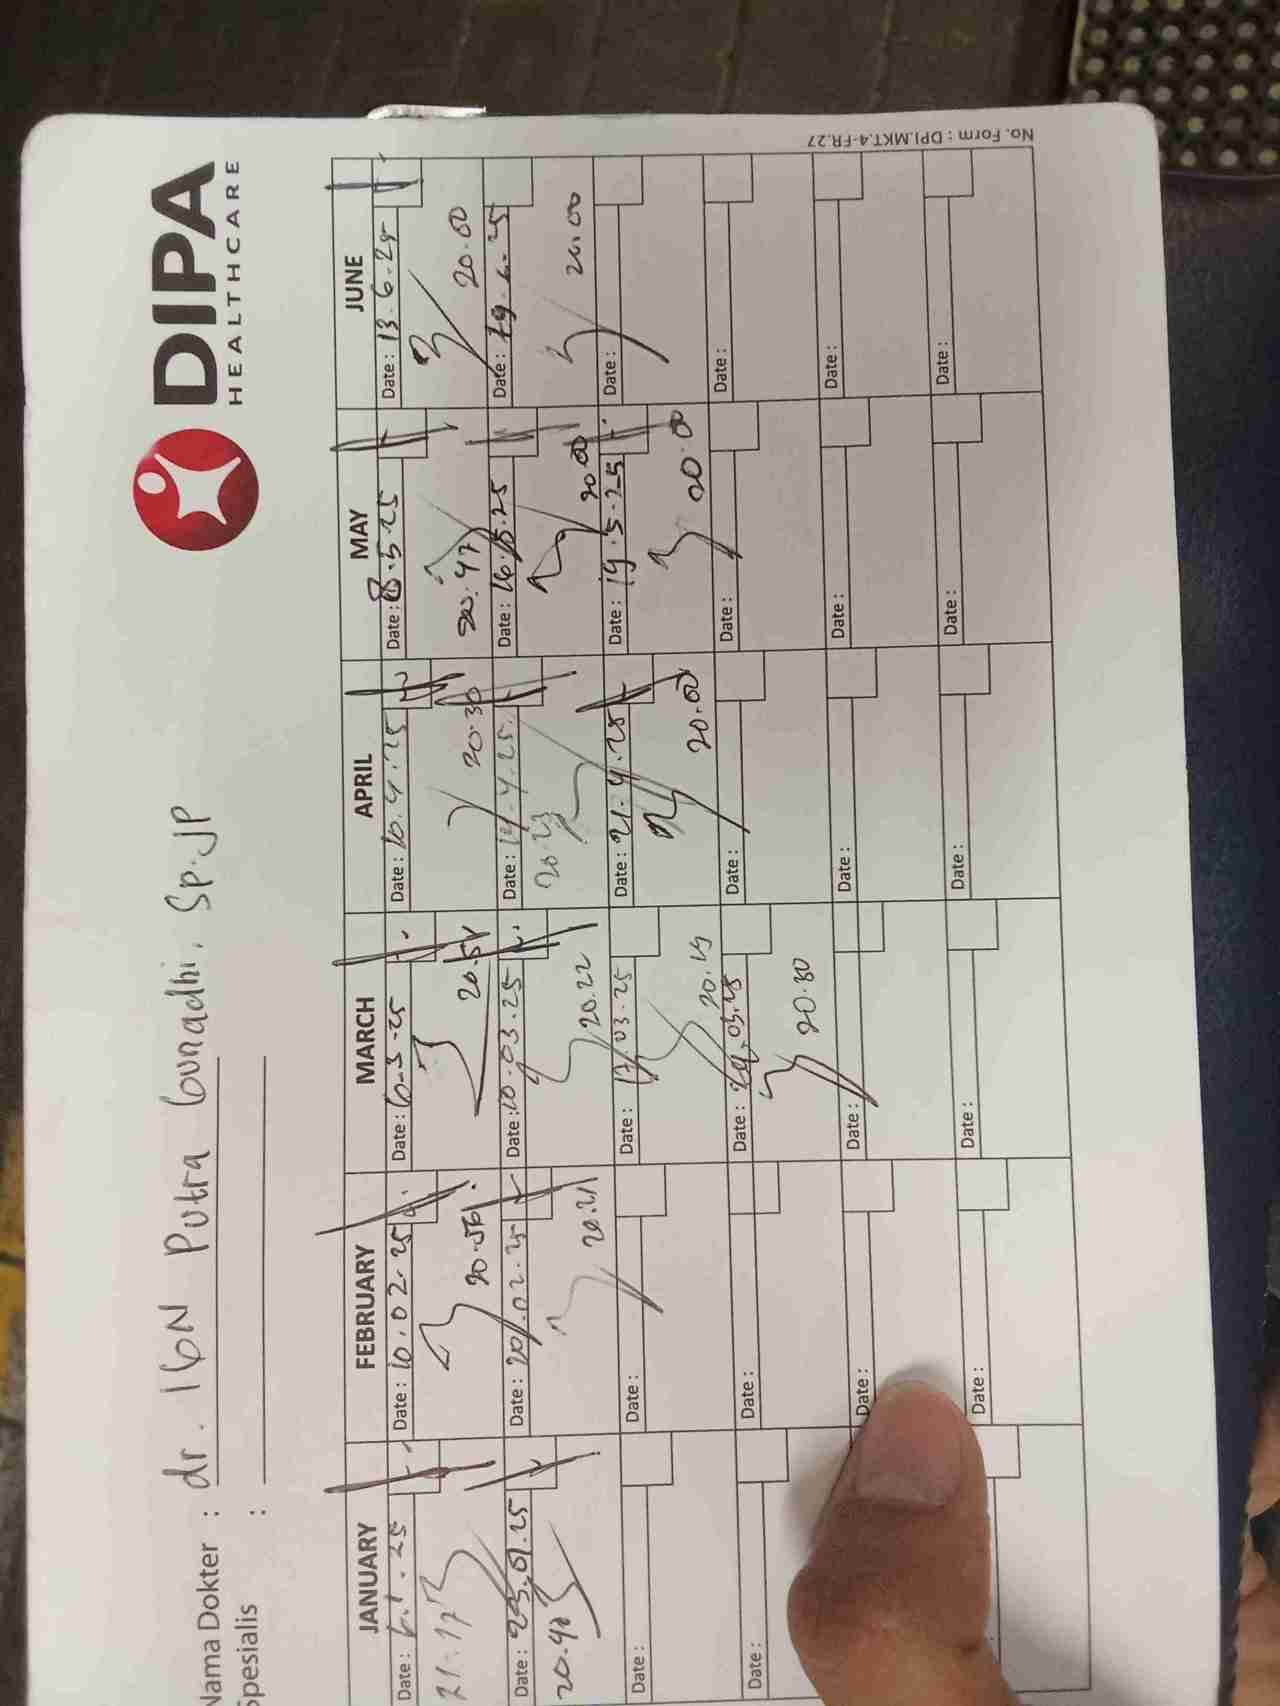 DIPA
HEALTHCARE
Nama Dokter : dr. IGN Putra Gunadhi. Sp.JP
Spesialis :
JANUARY FEBRUARY MARCH APRIL MAY JUNE
Date : 6.1.25 Date : 10.02.25 Date : 6-3-25 Date : 10.4.25 Date : 8.5.25 Date : 13.6.25
21.17 20.56 20.51 20.30 20.47 20.00
Date : 23.01.25 Date : 20.02.25 Date : 10.03.25 Date : 14.4.25. Date : 16.5.25 Date : 19.6.25
20.47 20.21 20.22 20.23 20.00 20.00
Date : Date : Date : 17.03.25 Date : 21.4.25 Date : 19.5.25 Date :
20.19 20.00 20.00
Date : Date : Date : 24.03.25 Date : Date : Date :
20.30
Date : Date : Date : Date : Date :
Date : Date : Date : Date : Date :
No. Form : DPI.MKT.4-FR.27